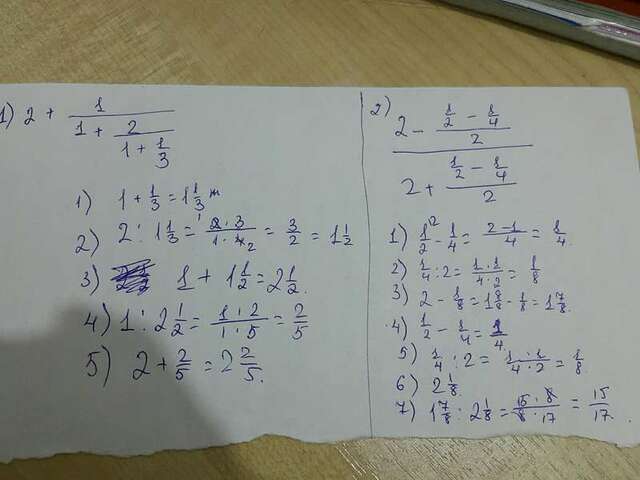 1) 2 + 1/(1 + 2/(1 + 1/3))
1) 1 + 1/3 = 1 1/3
2) 2 : 1 1/3 = 2·3/1·4 2 = 3/2 = 1 1/2
3) 1 + 1 1/2 = 2 1/2.
4) 1 : 2 1/2 = 1·2/1·5 = 2/5
5) 2 + 2/5 = 2 2/5.
2) (2 - (1/2 - 1/4)/2)/(2 + (1/2 - 1/4)/2)
1) 1/2 2 - 1/4 = 2-1/4 = 1/4.
2) 1/4 : 2 = 1·1/4·2 = 1/8
3) 2 - 1/8 = 1 8/8 - 1/8 = 1 7/8.
4) 1/2 - 1/4 = 1/4
5) 1/4 : 2 = 1·1/4·2 = 1/8.
6) 2 1/8.
7) 1 7/8 : 2 1/8 = 15·8/8·17 = 15/17.